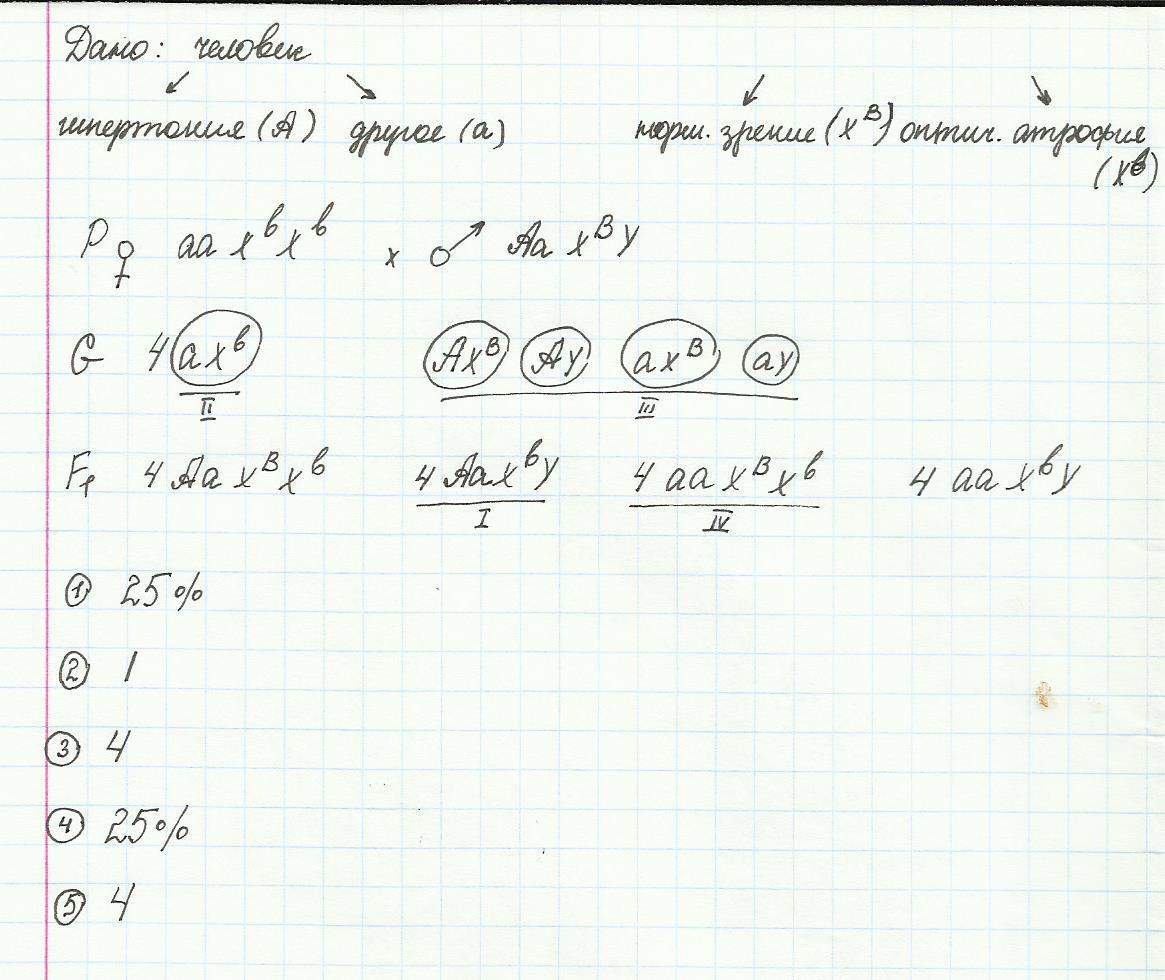 Дано: человек
гипертония (А) другое (а) норм. зрение (X^B) оптич. атрофия
(X^в)
P ♀ aa x^в x^в x ♂ Aa x^B y
G 4 a x^в Ax^B Ay ax^B ay
II III
F₁ 4 Aa x^B x^в 4 Aa x^в y 4 aa x^B x^в 4 aa x^в y
I IV
① 25%
② 1
③ 4
④ 25%
⑤ 4